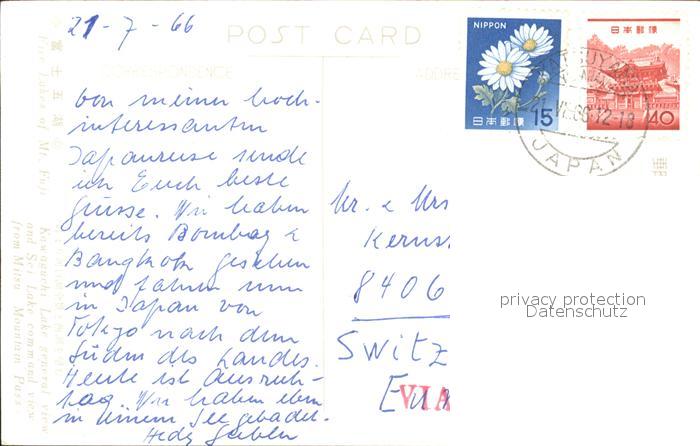 21-7-66
POST CARD
CORRESPONDENCE
ADDRE
NIPPON
15
日本郵便
日本郵便
40
JAPAN
Von meiner hoch-
interessanten
Japanreise sende
ich Euch beste
Grüsse. Wir haben
bereits Bombay &
Bangkok gesehen
und fahren nun
in Japan von
Tokyo nach dem
Süden des Landes.
Heute ist Ausruh-
tag. Wir haben eben
in einem See gebadet.
Hedy
Mr. & Mrs
8406
Switz
VIA
privacy protection
Datenschutz
富士五湖
Five Lakes of Mt. Fuji
Kawaguchi Lake general view
and Sei Lake command view
from Mitsu Mountain Pass